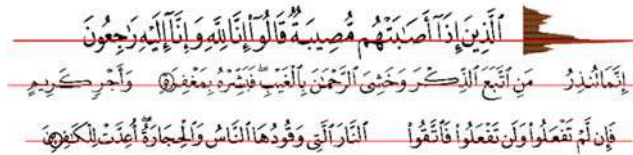 ٱلَّذِينَ إِذَآ أَصَٰبَتْهُم مُّصِيبَةٌ قَالُوٓا۟ إِنَّا لِلَّهِ وَإِنَّآ إِلَيْهِ رَٰجِعُونَ
إِنَّمَا تُنذِرُ مَنِ ٱتَّبَعَ ٱلذِّكْرَ وَخَشِىَ ٱلرَّحْمَٰنَ بِٱلْغَيْبِ فَبَشِّرْهُ بِمَغْفِرَةٍ وَأَجْرٍ كَرِيمٍ
فَإِن لَّمْ تَفْعَلُوا۟ وَلَن تَفْعَلُوا۟ فَٱتَّقُوا۟ ٱلنَّارَ ٱلَّتِى وَقُودُهَا ٱلنَّاسُ وَٱلْحِجَارَةُ أُعِدَّتْ لِلْكَٰفِرِينَ